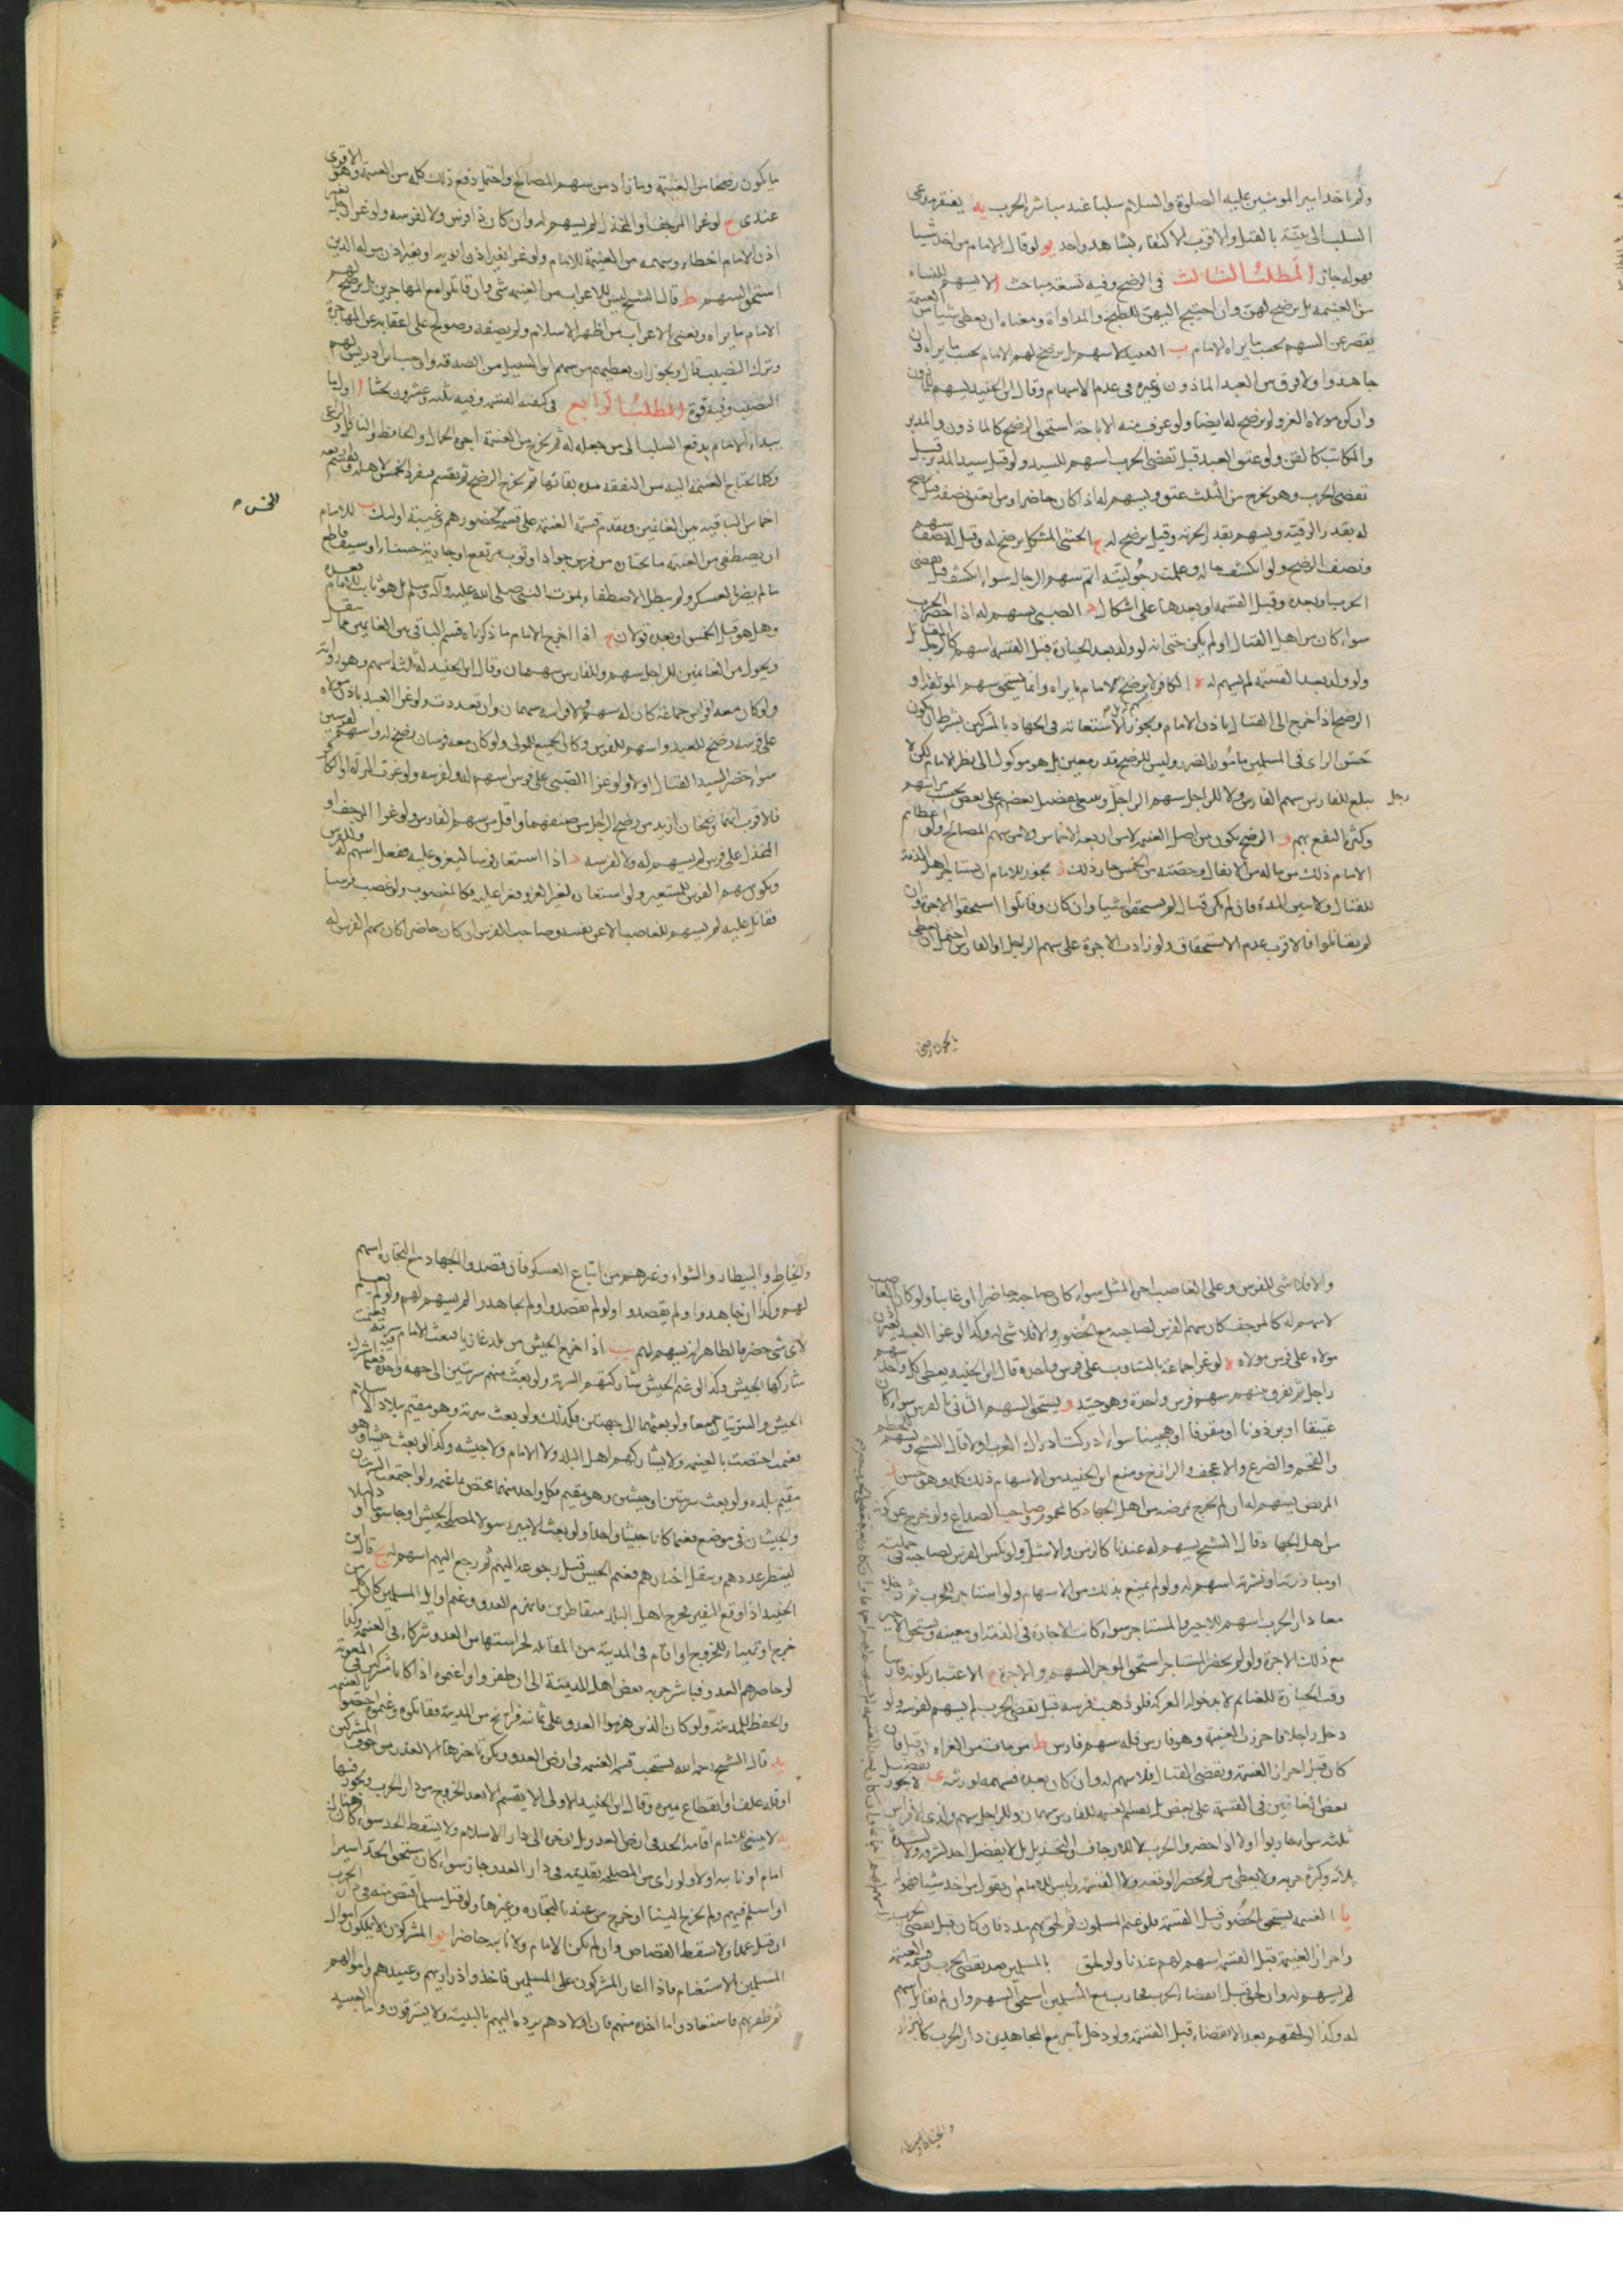 ولم ياخذ امير المومنين عليه الصلوة والسلام سلبا عند مباشرة الحرب يه يفتقر مدعى
السلب الى بينة بالقتل والاقرب الاكتفاء بشاهد واحد يو لو قال الامام من اخذ شيئا
فهو له جاز المطلب الثالث فى الرضخ وفيه تسعة مباحث ا لا يسهم للنساء
من الغنيمة بل يرضخ لهن وان احتيج اليهن للطبخ والمداواة ومعناه ان يعطى شيئا من الغنيمة
يقصر عن السهم بحسب ما يراه الامام ب العبيد لا سهم بل يرضخ لهم الامام بحسب ما يراه وان
جاهدوا ولا فرق بين العبد الماذون وغيره فى عدم الاسهام وقال ابن الجنيد يسهم للماذون
وان كره مولاه الغزو لم يرضخ له ايضا ولو عرف منه الاباحة استحق الرضخ كالماذون والمدبر
والمكاتب كالقن ولو عتق العبد قبل تقضى الحرب اسهم للسيد ولو قتل سيد المدبر قبل
تقضى الحرب وهو يخرج من الثلث عتق ويسهم له اذا كان حاضرا ومن يعتق نصفه قيل يرضخ
له بقدر الرقية ويسهم بقدر الحرية وقيل يرضخ له ج الخنثى المشكل يرضخ له وقيل له نصف سهم
ونصف الرضخ ولو انكشف حاله وعلمت رجوليته اتم سهم الرجال سواء انكشف قبل تقضى
الحرب او بعده وقبل القسمة او بعدها على اشكال د الصبى يسهم له اذا حضر الحرب
سواء كان من اهل القتال او لم يكن حتى انه لو ولد بعد الحيازة قبل القسمة اسهم كالرجل المقاتل
ولو ولد بعد القسمة لم يسهم له ه الكافر يرضخ له الامام ما يراه وانما يستحق سهم المؤلفة او
الرضخ اذا خرج الى القتال باذن الامام ويجوز الاستعانة فى الجهاد بالمشركين بشرط ان يكون
حسن الراى فى المسلمين مامون الضرر وليس للرضخ قدر معين بل هو موكول الى نظر الامام لكن لا
يبلغ للفارس سهم الفارس ولا للراجل سهم الراجل
رجل
وكثرة النفع بهم و الرضخ يكون من اصل الغنيمة لا من اربعة الاخماس ولا من سهم المصالح ولو اعطاهم
الامام ذلك من ماله من الانفال وحصته من الخمس جاز ذلك ز يجوز للامام ان يستاجر اهل الذمة
للقتال ولا يبين المدة فان لم يكن قتال لم يستحقوا شيئا وان كان وقاتلوا استحقوا الاجرة وان
لم يقاتلوا فالاقرب عدم الاستحقاق ولو زادت الاجرة على سهم الراجل او الفارس احتمل ان يعطى
ما يكون رضخا
ما يكون رضخا من الغنيمة وما زاد من سهم المصالح واحتمل دفع ذلك كله من الغنيمة وهو الاقوى
عندى ح لو غزا المرجف او المخذل لم يسهم له وان كان ذا فرس ولا لفرسه ولو غزا الرجل بغير
اذن الامام اخطاء وسهمه من الغنيمة للامام ولو غزا بغير اذن ابويه او بغير اذن من له الدين
استحق السهم ط قال الشيخ ليس للاعراب من الغنيمة شى وان قاتلوا مع المهاجرين بل يرضخ لهم
الامام ما يراه ونعنى بالاعراب من اظهر الاسلام ولم يصفه وصولح على اعفائه عن المهاجرة
وترك النصيب قال ويجوز ان يعطيهم من سهم ابن السبيل من الصدقة واوجب ابن ادريس لهم
النصيب وفيه قوة المطلب الرابع فى كيفية القسمة وفيه ثلثة وعشرون بحثا ا اول ما
يبداء الامام بدفع السلب الى من جعله له ثم يخرج من الغنيمة اجرة الحمال والحافظ والناقل والراعى
وكلما تحتاج الغنيمة اليه من النفقة مدة بقائها ثم يخرج الرضخ ثم يقسم فيفرد الخمس لاهله ويقسم اربعة
الخمس
اخماس الباقية بين الغانمين ويقدم قسمة الغنيمة على قسمة لحضورهم وغيبة اولئك ب للامام
ان يصطفى من الغنيمة ما يختاره من فرس جواد او ثوب مرتفع او جارية حسناء او سيف قاطع
ما لم يضر بالعسكر ولم يبطل الاصطفاء بموت النبى صلى الله عليه وآله وسلم بل هو ثابت للامام بعده
وهل هو قبل الخمس او بعده قولان ج اذا اخرج الامام ما ذكرناه قسم الباقى بين الغانمين مما ينقل
ويحول من الغانمين للراجل سهم وللفارس سهمان وقال ابن الجنيد له ثلثة اسهم وهو رواية
ولو كان معه افراس جماعة كان له سهم ولافراسه سهمان وان تعددت ولو غزا العبد باذن مولاه
على فرسه رضخ للعبد واسهم للفرس وكان الجميع للمولى ولو كان معه فرسان رضخ له واسهم لفرسين
سواء حضر السيد القتال او لا ولو غزا الصبى على فرس اسهم له ولفرسه ولو غزت المراة او الكافر
فالاقرب انهما يرضخان ازيد من رضخ الراجل من صنفهما واقل من سهم الفارس ولو غزا المرجف او
المخذل على فرس لم يسهم له ولا لفرسه د اذا استعار فرسا ليغزو عليه ففعل اسهم له وللفرس
ويكون سهم الفرس للمستعير ولو استعاره لغير الغزو فغزا عليه فكالمغصوب ولو غصب فرسا
فقاتل عليه لم يسهم للغاصب الا عن نفسه وصاحب الفرس ان كان حاضرا كان سهم الفرس له
والا فلا شى للفرس وعلى الغاصب اجرة المثل سواء كان صاحبه حاضرا او غائبا ولو كان الغاصب
لا سهم له كالمرجف كان سهم الفرس لصاحبه مع الحضور والا فلا شى له وكذا لو غزا العبد بغير اذن
مولاه على فرس مولاه ه لو غزا جماعة بالتناوب على فرس واحدة قال ابن الجنيد يعطى كل واحد سهم
راجل ثم يفرق بينهم سهم فرس واحدة وهو جيد و ويستحق السهم الثانى بالفرس سواء كان
عتيقا او برذونا او مقرفا او هجينا سواء ادركت ادراك العراب او لا قال الشيخ ويسهم للحطم
والقحم والضرع والاعجف والرازح ومنع ابن الجنيد من الاسهام ذلك كله وهو حسن ز
المريض يسهم له ان لم يخرج بمرضه من اهل الجهاد كالمحموم وصاحب الصداع ولو خرج عن كونه
من اهل الجهاد قال الشيخ يسهم له عندنا كالزمن والاشل ولو نكس الفرس لصاحبه فى حملته
او مبارزته او لشربه اسهم له ولم يمنع بذلك من الاسهام ولو استاجر للحرب ثم دخلا
معا دار الحرب اسهم للاجير والمستاجر سواء كانت الاجارة فى الذمة او معينة ويستحق الاجير
مع ذلك الاجرة ولو لم يحضر المستاجر استحق الموجر السهم والاجرة ح الاعتبار بكونه فارسا
وقت الحيازة للغنائم لا بدخوله المعركة فلو ذهب فرسه قبل تقضى الحرب لم يسهم لفرسه ولو
دخل راجلا فاحرزت الغنيمة وهو فارس فله سهم فارس ط من مات من الغزاة او قتل فان
كان قبل احراز الغنيمة وتقضى القتال فلا سهم له وان كان بعده فسهمه لورثته ى لا يجوز تفضيل
بعض الغانمين فى القسمة على بعض بل يقسم الغنيمة للفارس سهمان وللراجل سهم ولذى الافراس
ثلثة سواء حاربوا او لا اذا حضروا للحرب لا للارجاف والتخذيل بل لا يفضل احد لشرفه ولا لشدة
بلائه وكثرة حربه ولا يعطى من لم يحضر الوقعة ولا القسمة وليس للامام ان يقول من اخذ شيئا فهو له
يا الغنيمة يستحق بالحضور قبل القسمة فلو غنم المسلمون ثم لحق بهم مدد فان كان قبل تقضى الحرب
واحراز الغنيمة قبل القسمة اسهم لهم عندنا ولو لحق بالمسلمين بعد تقضى الحرب وقسمة الغنيمة
لم يسهم له وان لحق قبل انقضاء الحرب فحارب مع المسلمين استحق السهم وان لم يقاتل اسهم
له وكذا لو لحقهم بعد الانقضاء قبل القسمة ولو دخل تاجر مع المجاهدين دار الحرب كالبزاز
والخياط والبيطار
والخياط والبيطار والشواء وغيرهم من اتباع العسكر فان قصدوا الجهاد مع التجارة اسهم
لهم وكذا ان جاهدوا ولم يقصدوا ولو لم يقصدوا ولم يجاهدوا لم يسهم لهم ولو لم يعلم
لاى شى حضر فالظاهر انه يسهم لهم يب اذا خرج الجيش من بلد غازيا فبعث الامام سرية فغنمت
شاركها الجيش وكذا لو غنم الجيش شاركتهم السرية ولو بعث منهم سريتين الى جهة واحدة فغنما اشترك
الجيش والسريتان جميعا ولو بعثهما الى جهتين فكذلك ولو بعث سرية وهو مقيم ببلاد الاسلام
فغنمت اختصت بالغنيمة ولا يشاركهم اهل البلد ولا الامام ولا جيشه وكذا لو بعث جيشا وهو
مقيم ببلده ولو بعث سريتين او جيشين وهو مقيم فكل واحد منهما مختص بما غنمه ولو اجتمعت السريتان
والجيشان فى موضع فغنما كانا جيشا واحدا ولو بعث الامير رسولا لمصلحة الجيش او جاسوسا او دليلا
لينظر عددهم وينقل اخبارهم فغنم الجيش قبل رجوعه اليهم ثم رجع اليهم اسهم له يج قال ابن
الجنيد اذا وقع النفير فخرج اهل البلد متقاطرين فانهزم العدو وغنم اوايل المسلمين كان كل من
خرج او تهياء للخروج او اقام فى المدينة من المقاتلة لحراستها من العدو شركاء فى الغنيمة وكذا
لو حاصرهم العدو فباشر حربه بعض اهل المدينة الى ان ظفروا وغنموه اذا كانا مشتركين فى المعونة
والحفظ للمدينة ولو كان الذين هزموا العدو على ثمانية فراسخ من المدينة فقاتلوه وغنموه اختصوا بالغنيمة
يد قال الشيخ رحمه الله يستحب قسم الغنيمة فى ارض العدو ويكره تاخيرها الا لعذر من خوف المشركين
او قلة علف او انقطاع ميرة وقال ابن الجنيد الاولى الا يقسم الا بعد الخروج من دار الحرب ويجوز فيها
يه لا ينبغى للامام اقامة الحد فى ارض العدو بل يؤخره الى دار الاسلام ولا يسقط الحد سواء كان هناك
امام او نايبه او لا ولو راى من المصلحة تقديمه فى دار العدو جاز سواء كان مستحق الحد اسيرا
او اسلم فيهم ولم يخرج الينا او خرج من عندنا للتجارة وغيرها ولو قتل مسلما اقتص منه فى دار الحرب
ان قتل عمدا ولا يسقط القصاص وان لم يكن الامام ولا نايبه حاضرا يو المشركون لا يملكون اموال
المسلمين بالاستغنام فاذا اغار المشركون على المسلمين فاخذوا ذراريهم وعبيدهم واموالهم
ثم ظفر بهم فاستعادوا ما اخذ منهم فان اولادهم يرد اليهم بالبينة ولا يسترقون واما العبيد